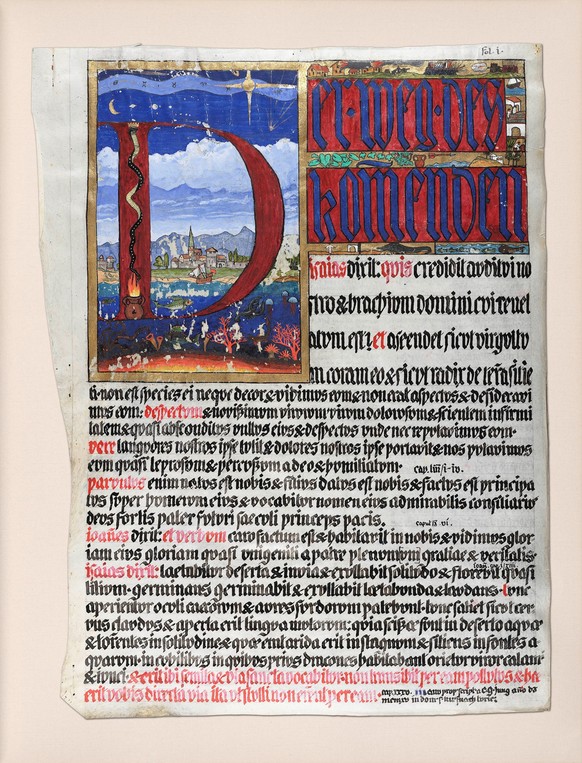 fol. i.
Der·Weg·des
kom̄enden
isaias dixit: quis credidit auditui no
stro & brachium domini cui revel
atum est? et ascendet sicut virgultu
m coram eo & sicut radix de terra sitie
ti · non est species ei neque decor & vidimus eum & non erat aspectus & desideravi
mus eum: despectum & novissimum virorum virum dolorum & scientem infirmi
tatem & quasi absconditus vultus eius & despectus unde nec reputavimus eum.
vere languores nostros ipse tulit & dolores nostros ipse portavit & nos putavimus
eum quasi leprosum & percussum a deo & humiliatum. cap. liii/i-iv.
parvulus enim natus est nobis & filius datus est nobis & factus est principa
tus super humerum eius & vocabitur nomen eius admirabilis consiliarius
deus fortis pater futuri saeculi princeps pacis. caput ix. vi.
ioañes dixit: et verbum caro factum est & habitavit in nobis & vidimus glor
iam eius gloriam quasi unigeniti a patre plenum gratiae & veritatis.
isaias dixit: laetabitur deserta & invia & exultabit solitudo & florebit quasi
lilium. germinans germinabit & exultabit laetabunda & laudans. tunc
aperientur oculi caecorum & aures surdorum patebunt. tunc saliet sicut cer
vus claudus & aperta erit lingua mutorum: quia scissae sunt in deserto aquae
& torrentes in solitudine & quae erat arida erit in stagnum & sitiens in fontes a
quarum. in cubilibus in quibus prius dracones habitabant orietur viror calami
& iunci. & erit ibi semita & via sancta vocabitur. non transibit per eam pollutus & ha
ec erit vobis directa via ita ut stulti non errent per eam. cap. xxxv.